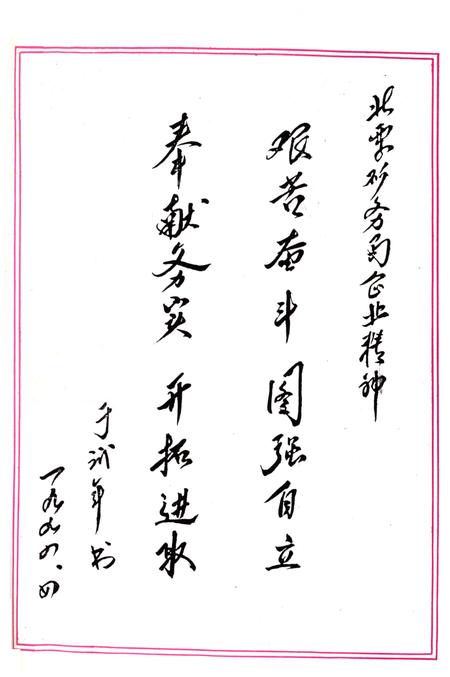 北票矿务局企业精神
艰苦奋斗 图强自立
奉献务实 开拓进取
于 年书
一九九四、四